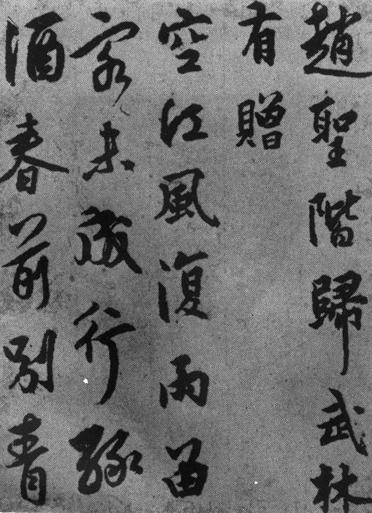 趙聖階歸武林
有贈
空江風復雨留
客未成行綠
酒春前別青